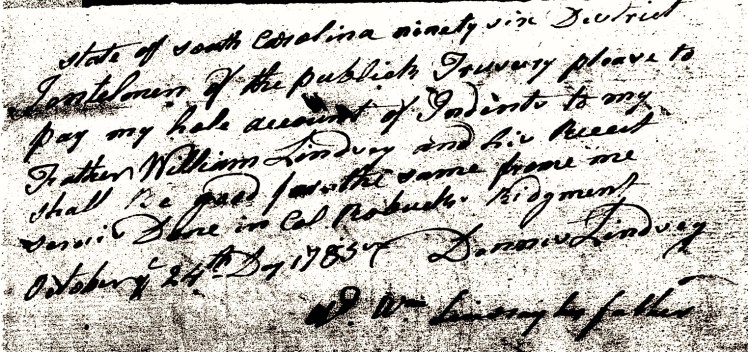 state of south Carolina ninety six District
Gentelmen of the publick Treusury please to
pay my hole account of Indents to my
Father William Lindsey and his Receet
shall Be good for the same frome me
servis Done in Col Robucks Ridgment
October ye 24th Dy 1785 Dennis Lindsey
Wm Lindsay his father